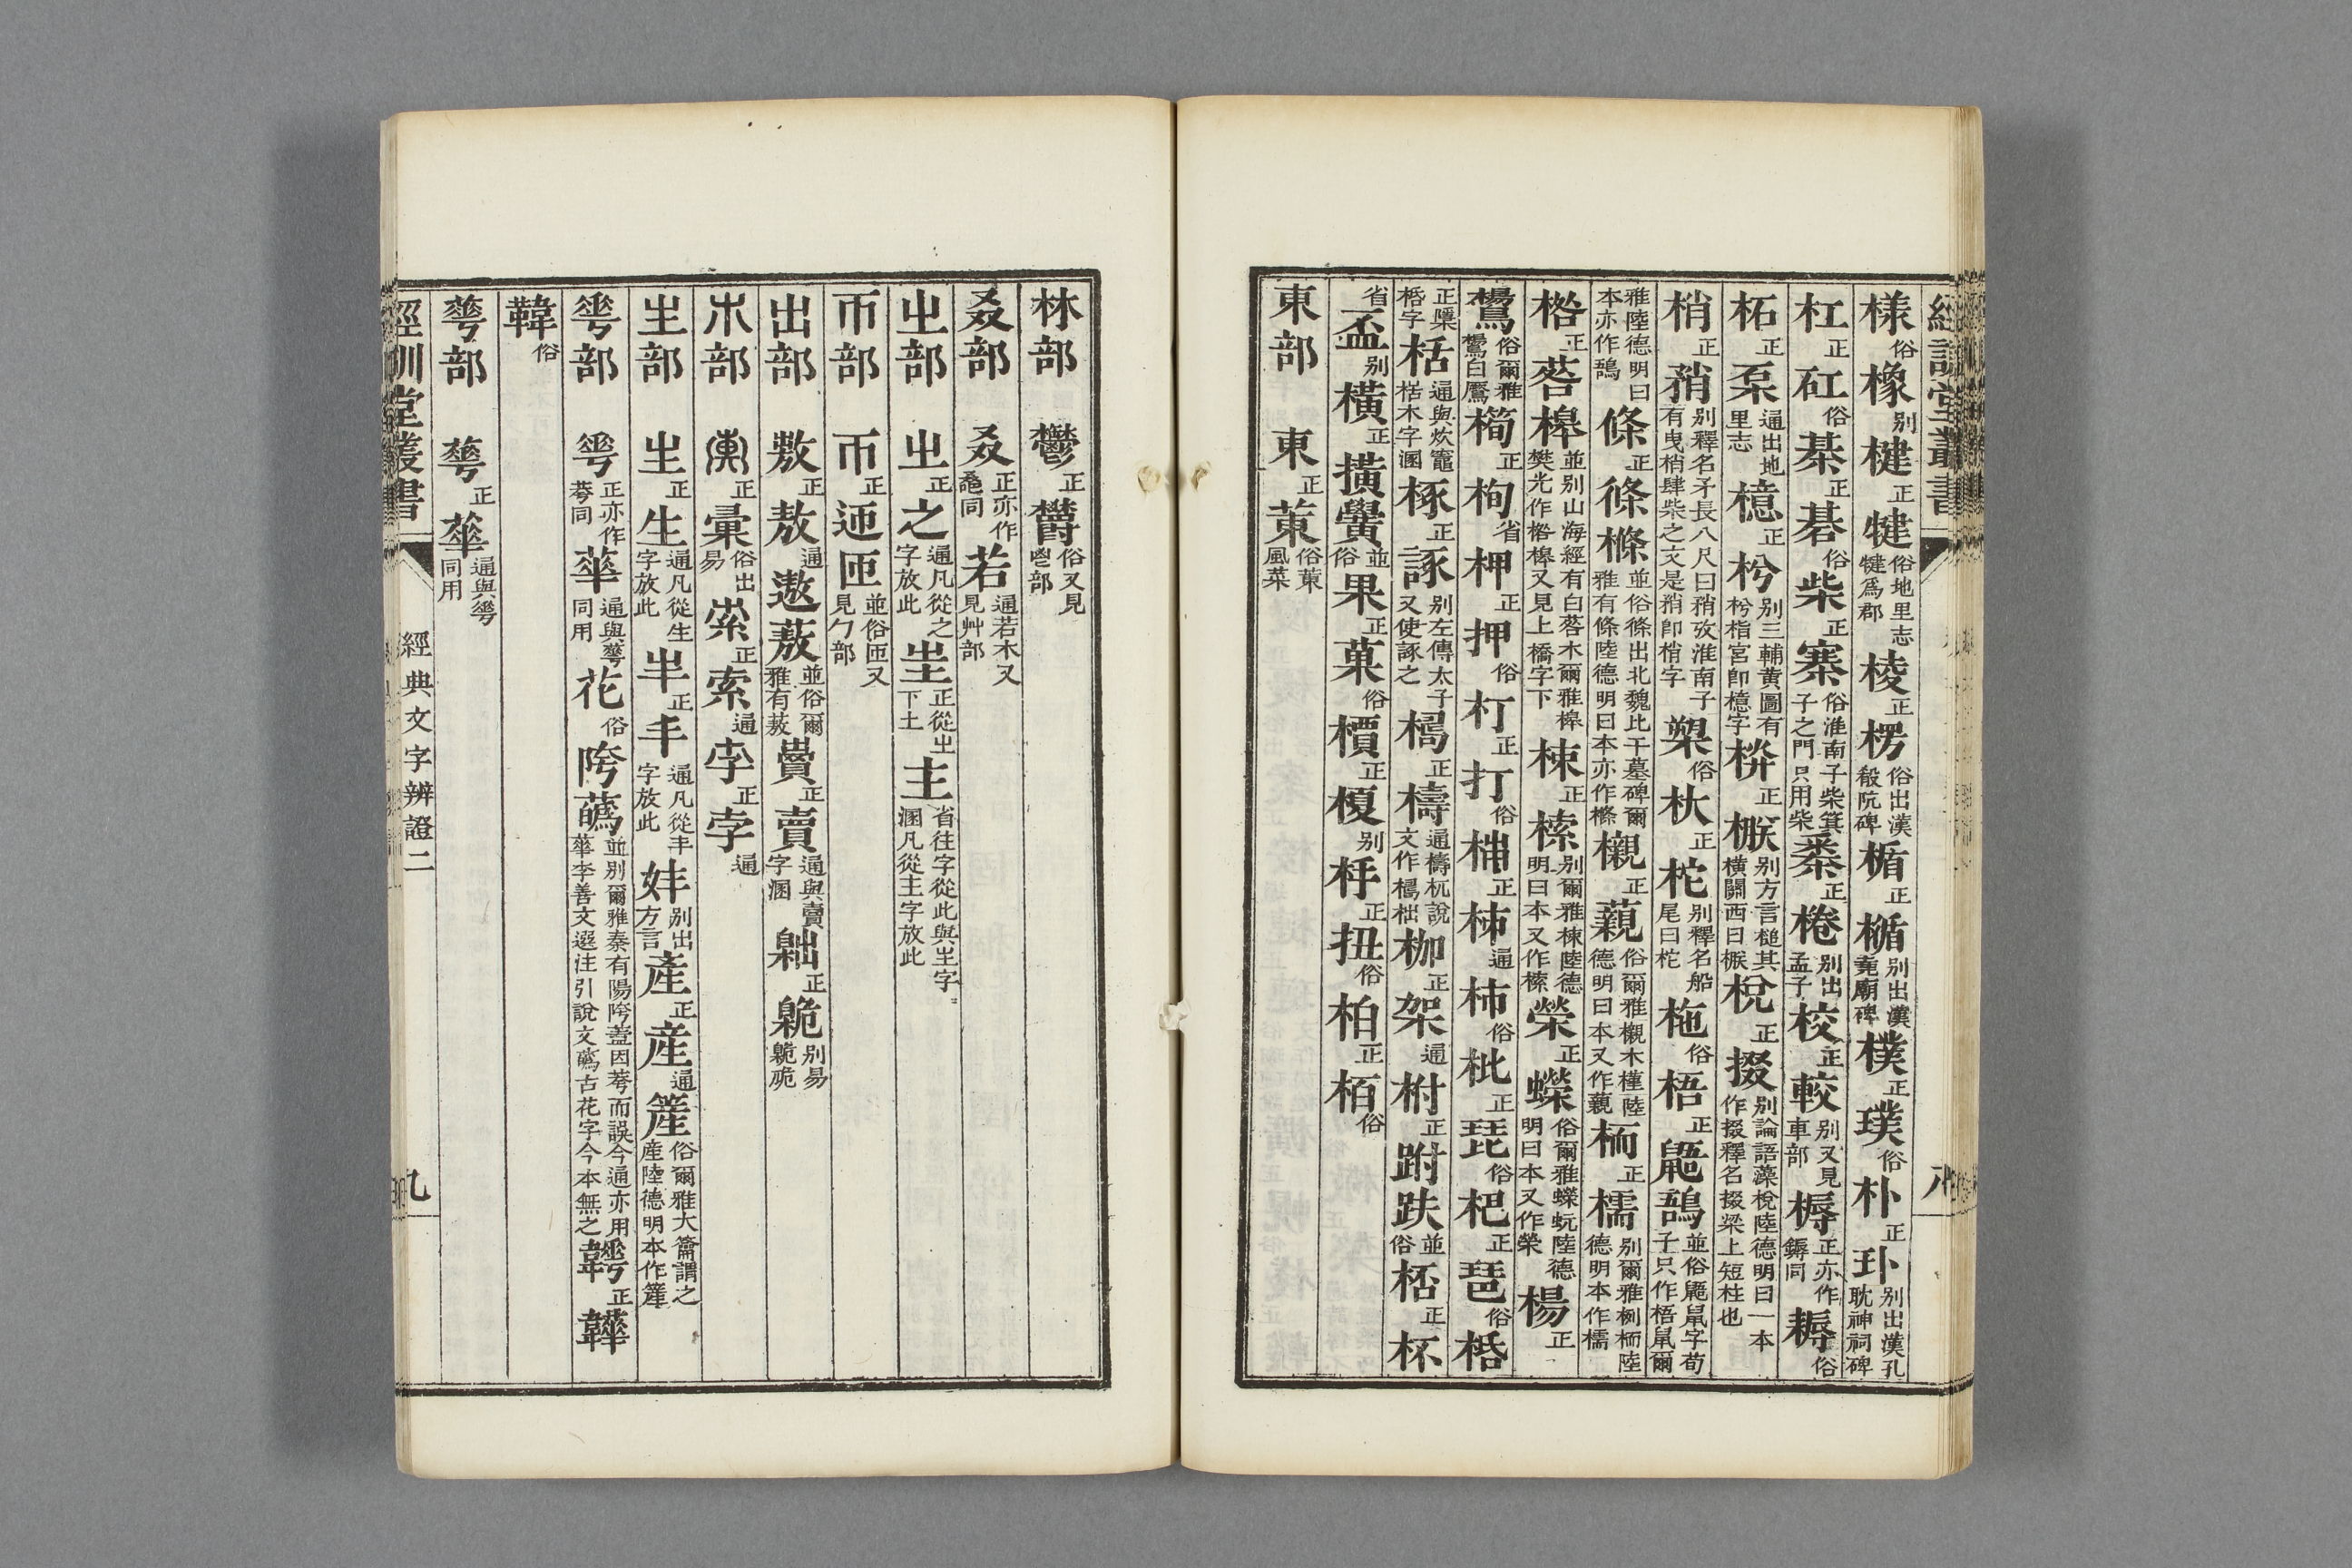 樣俗橡别楗正犍俗地里志犍爲郡棱正楞俗出漢殽阬碑楯正楯别出漢堯廟碑樸正璞俗朴正圤别出漢孔耽神祠碑
杠正矼俗棊正碁俗柴正寨俗淮南子柴箕子之門只用柴桊正棬别出孟子校正較别又見車部槈正亦作鎒同耨俗
柘正通出地里志檍正枍别三輔黄圖有枍栺宮卽檍字㭕正棴别方言槌其横關西曰㭕棁正掇别論語藻棁陸德明曰一本作掇釋名掇梁上短柱也
梢正矟别釋名矛長八尺曰矟攷淮南子有曳梢肆柴之文是矟卽梢字槊俗杕正柁别釋名船尾曰柁柂俗梧正鼯䳱並俗鼯鼠字荀子只作梧鼠爾
雅陸德明曰本亦作䳱條正䋲樤並俗條出北魏比干墓碑爾雅有條陸德明曰本亦作樤櫬正藽俗爾雅櫬木槿陸德明曰本又作藽栭正檽别爾雅栵栭陸德明本作檽
楁正荅槔並别山海經有白荅木爾雅槔樊光作楁槔又見上橋字下梀正樎别爾雅梀陸德明曰本又作樎榮正蠑俗爾雅蠑蚖陸德明曰本又作榮楊正
鸉俗爾雅鸉白鷢橁正栒省柙正押俗朾正打俗𣏟正柿通柿俗枇正琵俗杷正琶俗桰
正檃桰字栝通與炊竈栝木字溷椓正諑别左傳太子又使諑之檮正檮通檮杌說文作檮柮枷正架通柎正跗趺並俗桮正杯
省盃别橫正撗黌並俗果正菓俗檟正榎别杽正扭俗柏正栢俗
東部 東正菄俗菄風菜
林部 鬱正欝俗又見鬯部
叒部 叒正亦作𠭥同若通若木又見艸部
㞢部 㞢正之通凡從之字放此㞷正從㞢下土主省往字從此與㞷字溷凡從主字放此
帀部 帀正迊匝並俗匝又見勹部
出部 敖正敖通遨蔜並俗爾雅有蔜賣正賣通與賣字溷𥄔正臲别易臲卼
𣎵部 𣍘正彙俗出易索正索通孛正孛通
生部 生正生通凡從生字放此丰正丰通凡從丰字放此妦别出方言產正産通簅俗爾雅大籥謂之產陸德明本作簅
𠌶部 𠌶正亦作荂同華通與蕐同用花俗䧄蘤並别爾雅秦有陽䧄蓋因荂而誤今通亦用華李善文選注引說文蘤古花字今本無之𩏄正韡
韓俗
華部 華正蕐通與𠌶同用
經典文字辨證二
九